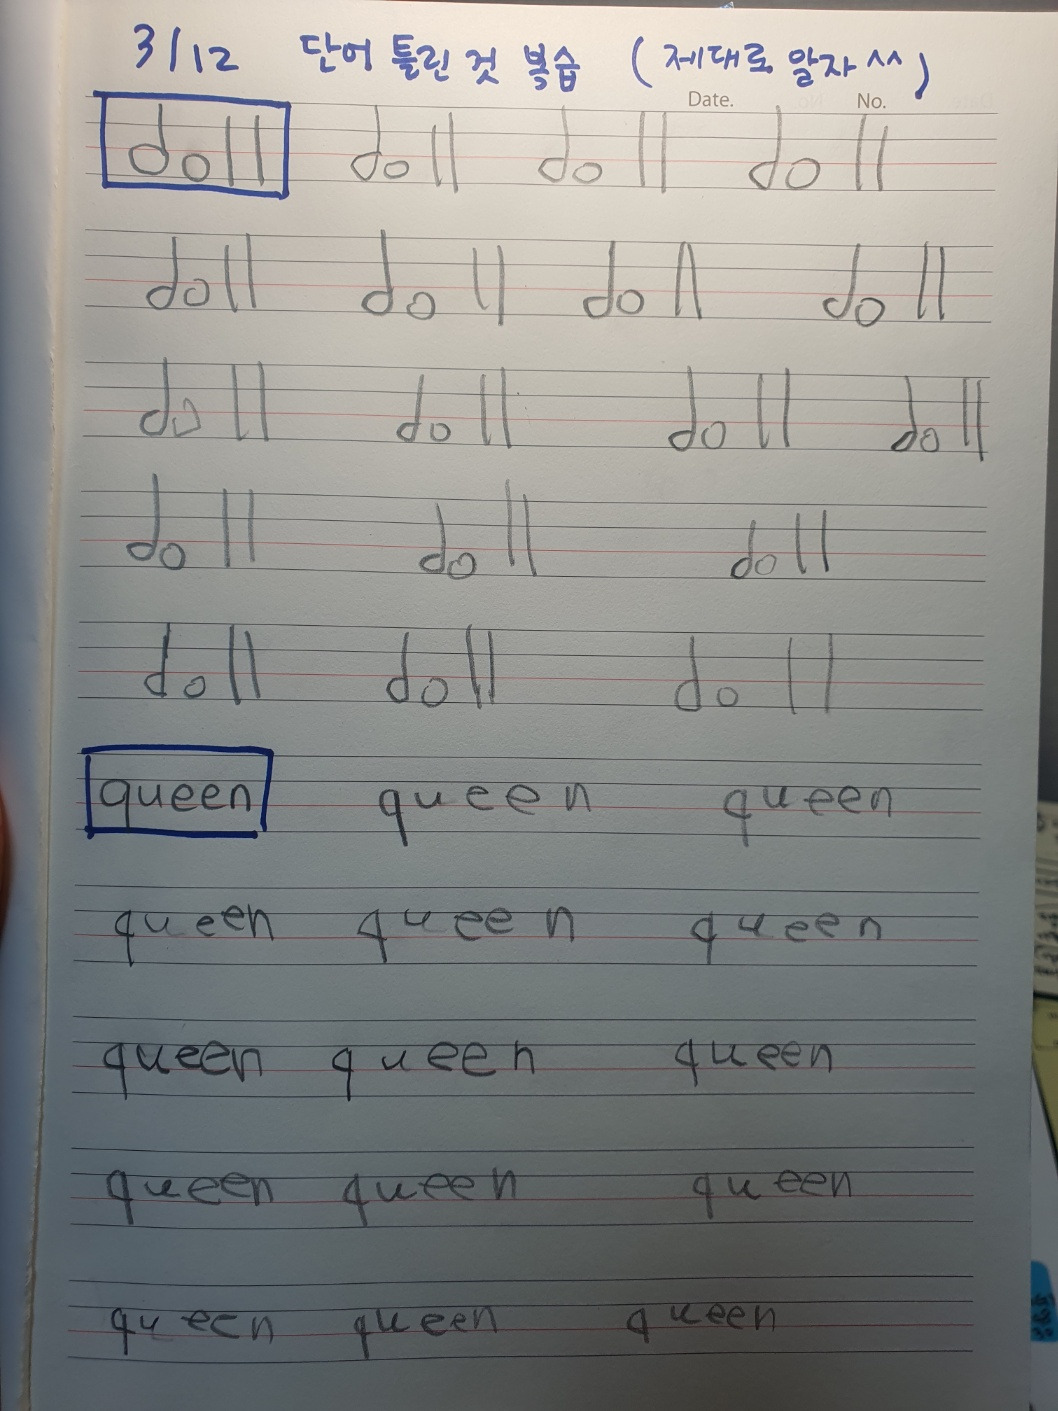 3/12 단어 틀린 것 복습 (제대로 알자 ^^)
Date. No.
doll doll doll doll
doll doll doll doll
doll doll doll doll
doll doll doll
doll doll doll
queen queen queen
queen queen queen
queen queen queen
queen queen queen
queen queen queen